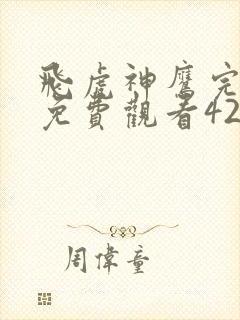 飛虎神鷹完
免費觀看42
周偉童